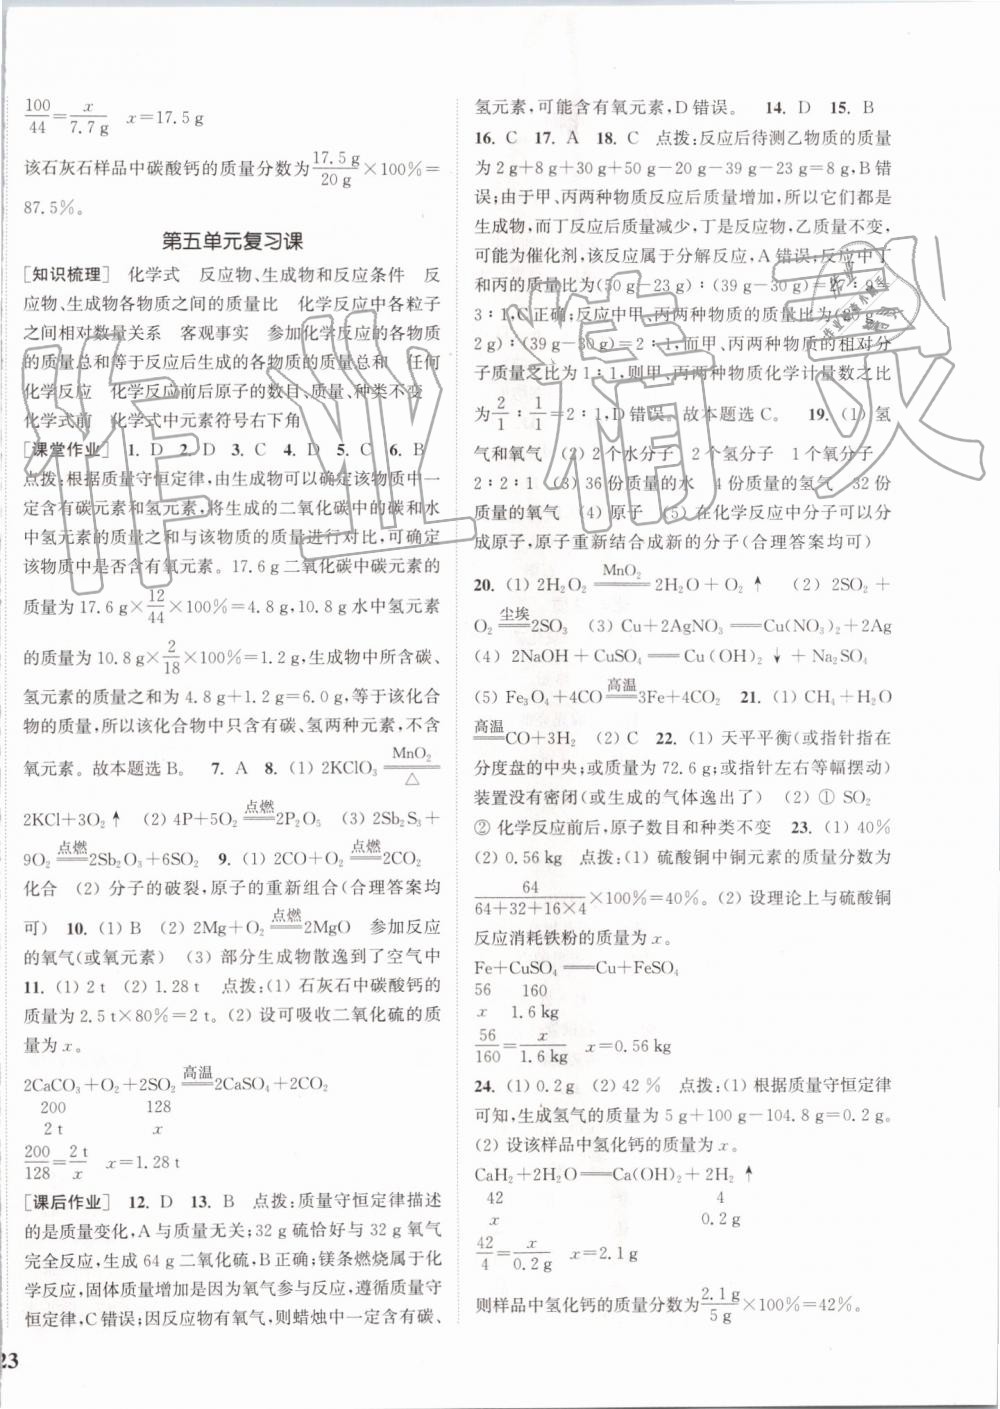 100/44=x/7.7 g　x=17.5 g
该石灰石样品中碳酸钙的质量分数为17.5 g/20 g×100%=
87.5%。
第五单元复习课
[知识梳理]　化学式　反应物、生成物和反应条件　反
应物、生成物各物质之间的质量比　化学反应中各粒子
之间相对数量关系　客观事实　参加化学反应的各物质
的质量总和等于反应后生成的各物质的质量总和　任何
化学反应　化学反应前后原子的数目、质量、种类不变
化学式前　化学式中元素符号右下角
[课堂作业]　1. D　2. D　3. C　4. D　5. C　6. B
点拨:根据质量守恒定律,由生成物可以确定该物质中一
定含有碳元素和氢元素,将生成的二氧化碳中的碳和水
中氢元素的质量之和与该物质的质量进行对比,可确定
该物质中是否含有氧元素。17.6 g二氧化碳中碳元素的
质量为17.6 g×12/44×100%=4.8 g,10.8 g水中氢元素
的质量为10.8 g×2/18×100%=1.2 g,生成物中所含碳、
氢元素的质量之和为4.8 g+1.2 g=6.0 g,等于该化合
物的质量,所以该化合物中只含有碳、氢两种元素,不含
氧元素。故本题选B。　7. A　8. (1) 2KClO₃ ══MnO₂/△══
2KCl+3O₂↑　(2) 4P+5O₂ ══点燃══ 2P₂O₅　(3) 2Sb₂S₃+
9O₂ ══点燃══ 2Sb₂O₃+6SO₂　9. (1) 2CO+O₂ ══点燃══ 2CO₂
化合　(2) 分子的破裂,原子的重新组合(合理答案均
可)　10. (1) B　(2) 2Mg+O₂ ══点燃══ 2MgO　参加反应
的氧气(或氧元素)　(3) 部分生成物散逸到了空气中
11. (1) 2 t　(2) 1.28 t　点拨:(1) 石灰石中碳酸钙的
质量为2.5 t×80%=2 t。(2) 设可吸收二氧化硫的质
量为x。
2CaCO₃+O₂+2SO₂ ══高温══ 2CaSO₄+2CO₂
200　128
2 t　x
200/128=2 t/x　x=1.28 t
[课后作业]　12. D　13. B　点拨:质量守恒定律描述
的是质量变化,A与质量无关;32 g硫恰好与32 g氧气
完全反应,生成64 g二氧化硫,B正确;镁条燃烧属于化
学反应,固体质量增加是因为氧气参与反应,遵循质量守
恒定律,C错误;因反应物有氧气,则蜡烛中一定含有碳、
23
氢元素,可能含有氧元素,D错误。　14. D　15. B
16. C　17. A　18. C　点拨:反应后待测乙物质的质量
为2 g+8 g+30 g+50 g-20 g-39 g-23 g=8 g,B错
误;由于甲、丙两种物质反应后质量增加,所以它们都是
生成物,而丁反应后质量减少,丁是反应物,乙质量不变,
可能为催化剂,该反应属于分解反应,A错误;反应中丁
和丙的质量比为(50 g-23 g)∶(39 g-30 g)=27∶9=
3∶1,C正确;反应中甲、丙两种物质的质量比为(20 g-
2 g)∶(39 g-30 g)=2∶1,而甲、丙两种物质的相对分
子质量之比为1∶1,则甲、丙两种物质化学计量数之比
为2/1∶1/1=2∶1,D错误。故本题选C。　19. (1) 氢
气和氧气　(2) 2个水分子　2个氢分子　1个氧分子
2∶2∶1　(3) 36份质量的水　4份质量的氢气　32份
质量的氧气　(4) 原子　(5) 在化学反应中分子可以分
成原子,原子重新结合成新的分子(合理答案均可)
20. (1) 2H₂O₂ ══MnO₂══ 2H₂O+O₂↑　(2) 2SO₂+
O₂ ══尘埃══ 2SO₃　(3) Cu+2AgNO₃══Cu(NO₃)₂+2Ag
(4) 2NaOH+CuSO₄══Cu(OH)₂↓+Na₂SO₄
(5) Fe₃O₄+4CO ══高温══ 3Fe+4CO₂　21. (1) CH₄+H₂O
══高温══ CO+3H₂　(2) C　22. (1) 天平平衡(或指针指在
分度盘的中央;或质量为72.6 g;或指针左右等幅摆动)
装置没有密闭(或生成的气体逸出了)　(2) ① SO₂
② 化学反应前后,原子数目和种类不变　23. (1) 40%
(2) 0.56 kg　点拨:(1) 硫酸铜中铜元素的质量分数为
64/(64+32+16×4)×100%=40%。(2) 设理论上与硫酸铜
反应消耗铁粉的质量为x。
Fe+CuSO₄══Cu+FeSO₄
56　160
x　1.6 kg
56/160=x/1.6 kg　x=0.56 kg
24. (1) 0.2 g　(2) 42 %　点拨:(1) 根据质量守恒定律
可知,生成氢气的质量为5 g+100 g-104.8 g=0.2 g。
(2) 设该样品中氢化钙的质量为x。
CaH₂+2H₂O══Ca(OH)₂+2H₂↑
42　4
x　0.2 g
42/4=x/0.2 g　x=2.1 g
则样品中氢化钙的质量分数为2.1 g/5 g×100%=42%。
作业精灵